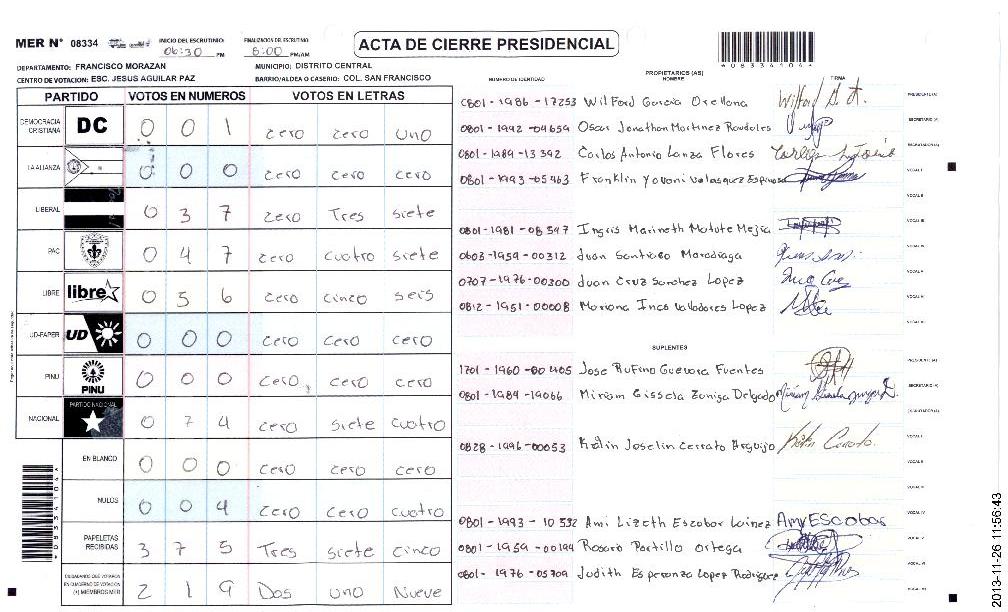 MER N° 08334
INICIO DEL ESCRUTINIO
06:30 PM
FINALIZACION DEL ESCRUTINIO
8:00 PM/AM
ACTA DE CIERRE PRESIDENCIAL
DEPARTAMENTO: FRANCISCO MORAZAN
MUNICIPIO: DISTRITO CENTRAL
CENTRO DE VOTACION: ESC. JESUS AGUILAR PAZ
BARRIO/ALDEA O CASERIO: COL. SAN FRANCISCO
PARTIDO VOTOS EN NUMEROS VOTOS EN LETRAS
DEMOCRACIA CRISTIANA DC 0 0 1 cero cero uno
LA ALIANZA 0 0 0 cero cero cero
LIBERAL 0 3 7 cero Tres siete
PAC 0 4 7 cero cuatro siete
LIBRE libre 0 5 6 cero cinco seis
UD-FAPER UD 0 0 0 cero cero cero
PINU PINU 0 0 0 cero cero cero
NACIONAL PARTIDO NACIONAL 0 7 4 cero siete cuatro
EN BLANCO 0 0 0 cero cero cero
NULOS 0 0 4 cero cero cuatro
PAPELETAS RECIBIDAS 3 7 5 Tres siete cinco
CIUDADANOS QUE VOTARON EN CUADERNO DE VOTACION (+) MIEMBROS MER 2 1 9 Dos uno Nueve
NUMERO DE IDENTIDAD
PROPIETARIOS (AS)
NOMBRE
FIRMA
0801-1986-17253 Wilford Garcia Orellana PRESIDENTE (A)
0801-1992-04659 Oscar Jonathan Martinez Raudales SECRETARIO (A)
0801-1989-13392 Carlos Antonio Lanza Flores ESCRUTADOR (A)
0801-1993-05463 Franklin Yovani Velasquez Espinosa VOCAL I
VOCAL II
0801-1981-08547 Ingris Marineth Matute Mejia VOCAL III
0603-1959-00312 Juan Santiago Maradiaga VOCAL IV
0707-1976-00300 Juan Cruz Sanchez Lopez VOCAL V
0812-1951-00008 Mariana Ines Valladares Lopez VOCAL VI
SUPLENTES
1701-1960-00405 Jose Rufino Guevara Fuentes PRESIDENTE (A)
0801-1984-19066 Miriam Gissela Zuniga Delgado SECRETARIO (A)
ESCRUTADOR (A)
0828-1996-00053 Katin Joselin Cerrato Arguijo VOCAL I
VOCAL II
VOCAL III
0801-1993-10532 Ami Lizeth Escobar Lainez Amy Escobar VOCAL IV
0801-1959-00194 Rosario Portillo Ortega VOCAL V
0801-1976-05709 Judith Esperanza Lopez Rodriguez VOCAL VI
2013-11-26 11:56:43